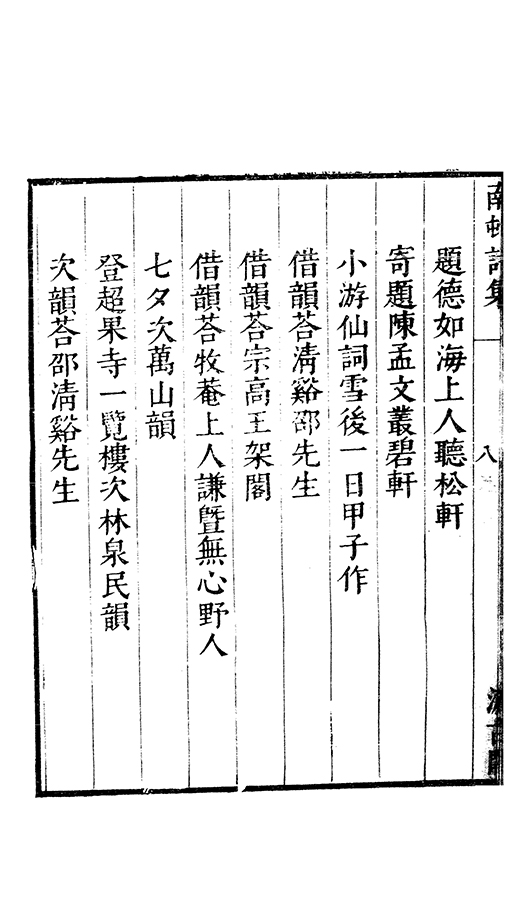 題德如海上人聽松軒
寄題陳孟文叢碧軒
小游仙詞雪後一日甲子作
借韻荅清谿邵先生
借韻荅宗高王架閣
借韻荅牧菴上人謙曁無心野人
七夕次萬山韻
登超果寺一覽樓次林泉民韻
次韻荅邵清谿先生
八